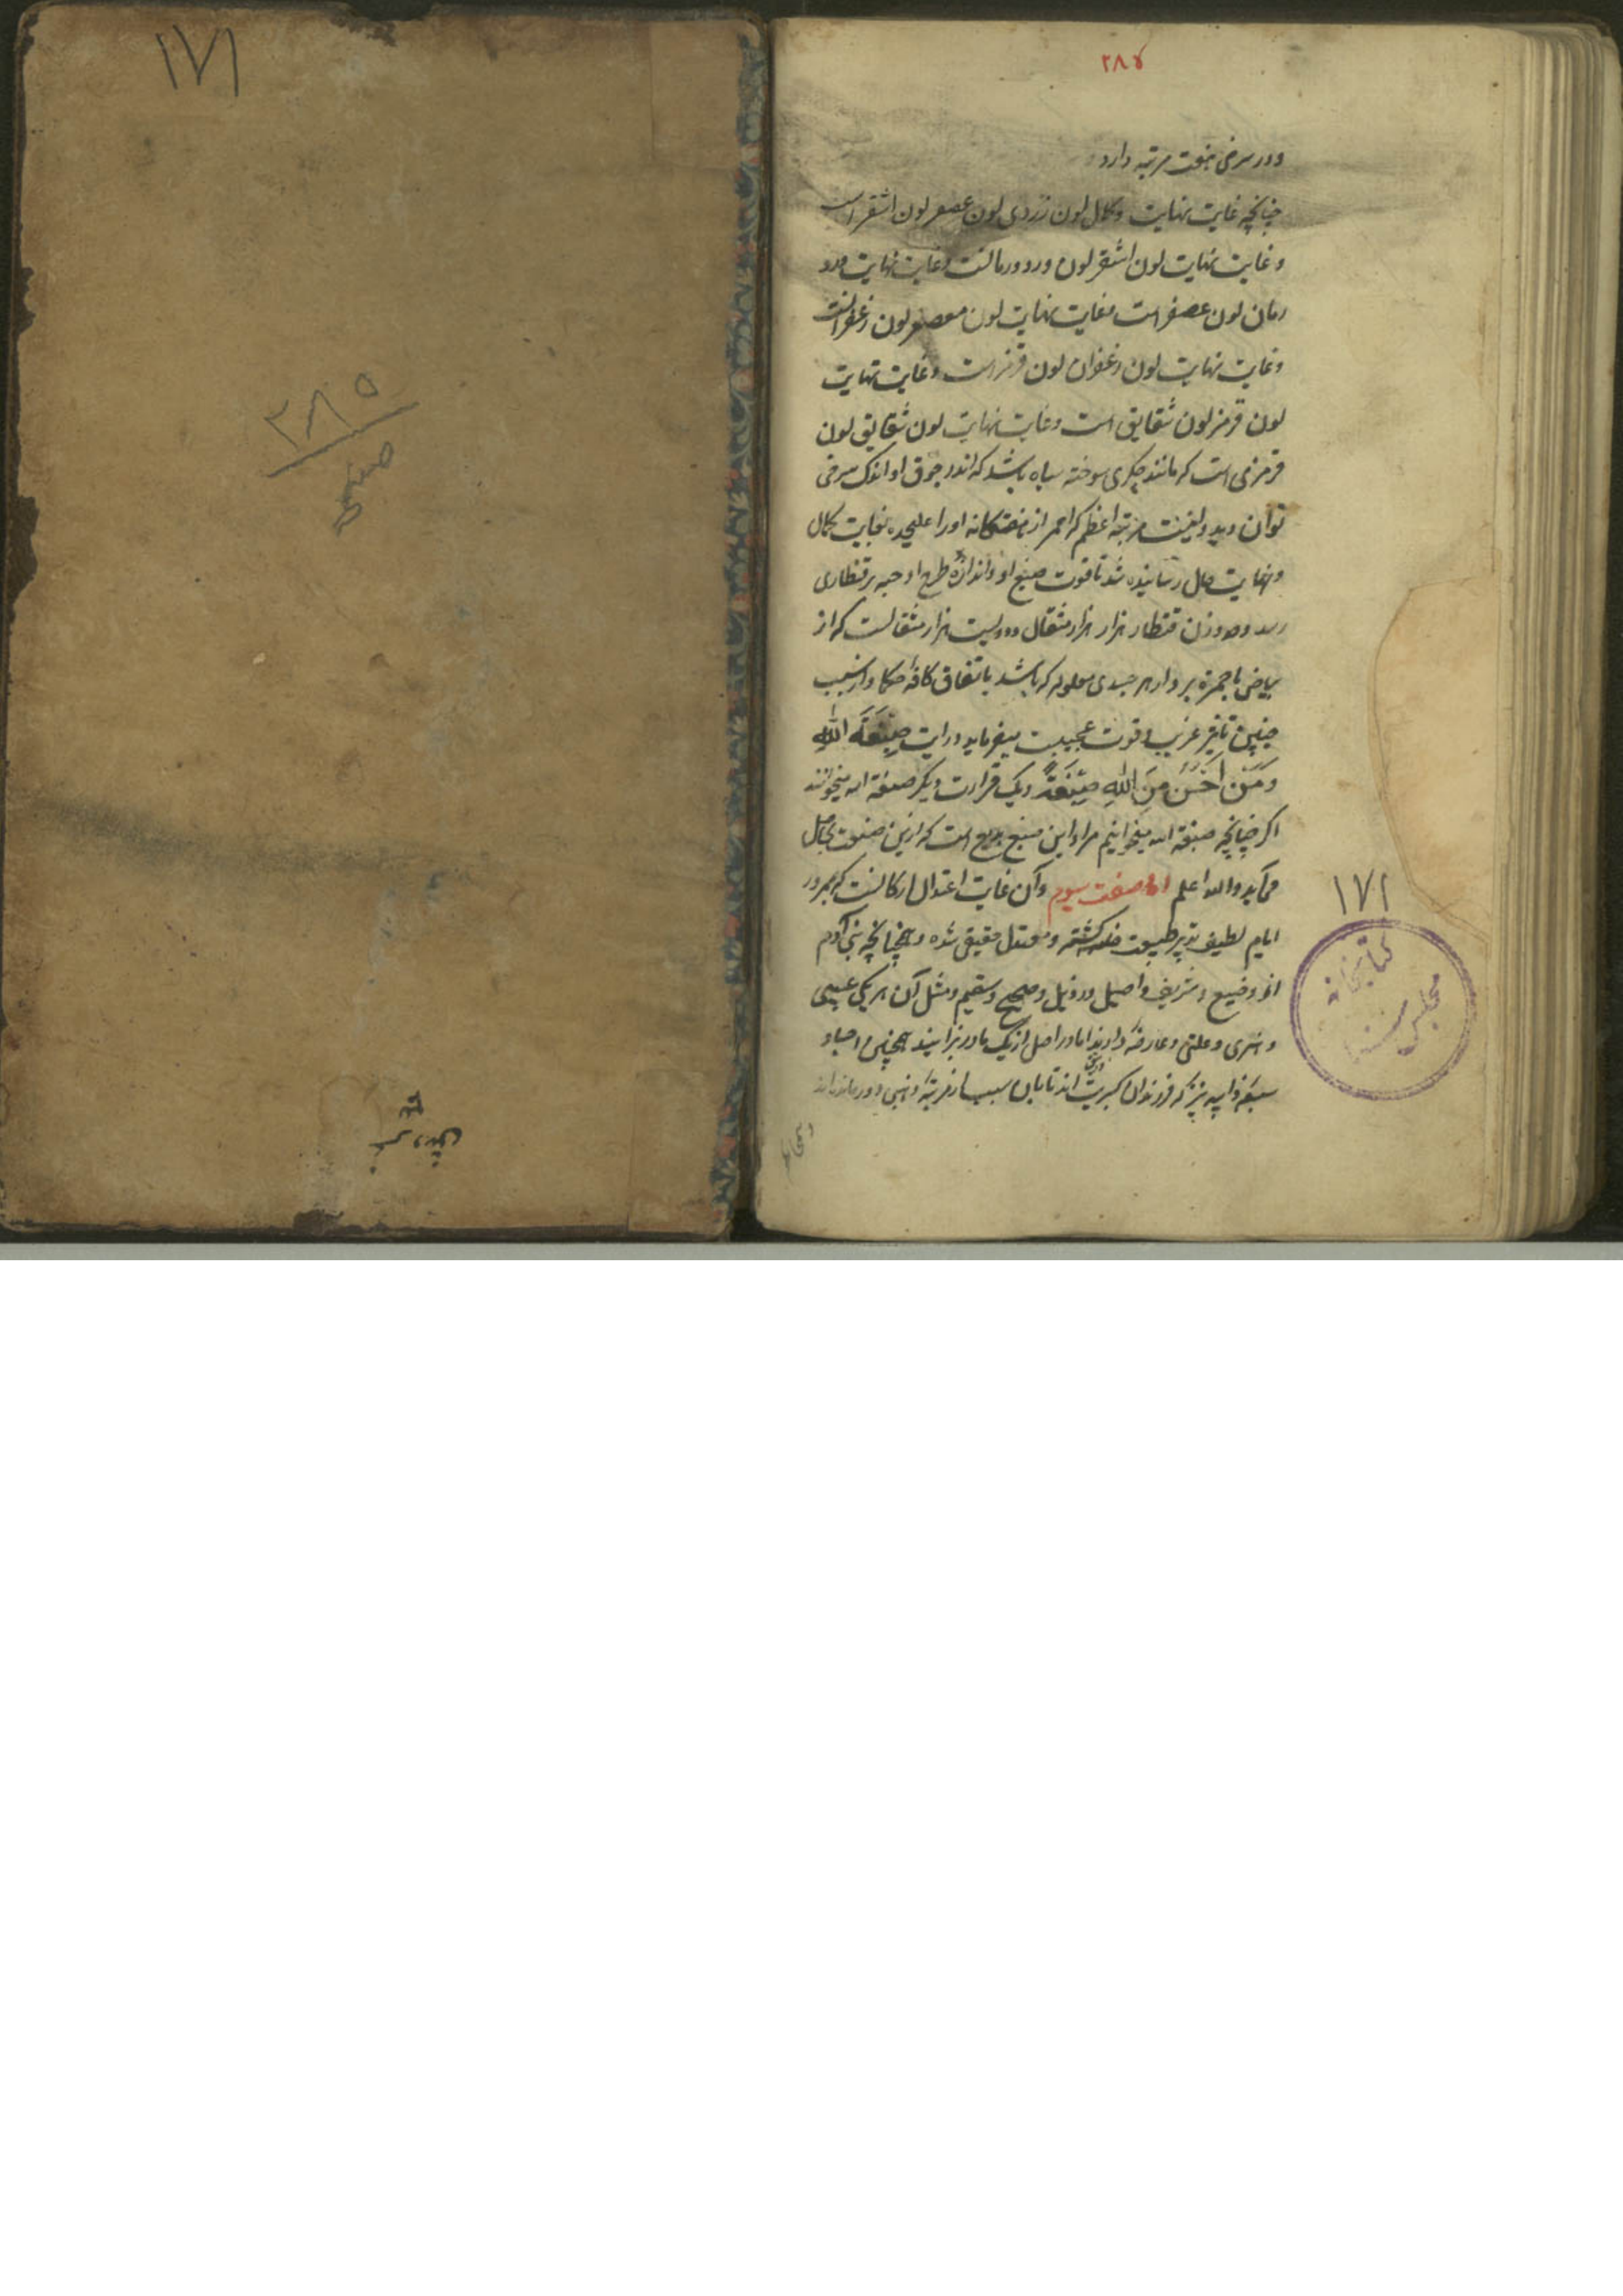 ۲۸۵
و در سرخی هفت مرتبه دارد
چنانچه غایت نهایت و کمال لون زردی لون عصفر لون اشقر است
و غایت نهایت لون اشقر لون ورد و رمانست و غایت نهایت ورد
رمان لون عصفر است و غایت نهایت لون معصفر لون زعفرانست
و غایت نهایت لون زعفران لون قرمز است و غایت نهایت
لون قرمز لون شقایق است و غایت نهایت لون شقایق لون
قرمزی است که مانند جگری سوخته سیاه باشد که اندر جوف او اندک سرخی
توان دید و اینست مرتبه اعظم که احمر از هفتگانه او را علیحده بغایت کمال
و نهایت حال رسانیده شد تا قوت صبغ او و اندازه طرح او حبه بر قنطاری
رسد و صد وزن قنطار هزار هزار مثقال و دویست هزار مثقالست که از
بیاض با حمرة بر دارد هر جسدی معلوله که باشد باتفاق کافه حکما و از سبب
چنین تاثیر غریب و قوت عجیب میفرماید در آیت صِبْغَةَ اللهِ
وَمَنْ اَحْسَنُ مِنَ اللهِ صِبْغَةً و یک قراءت دیگر صنعة الله میخوانند
اگر چنانچه صبغة الله میخوانیم مراد این صبغ بدیع است که ازین صنعت بحاصل
می‌آید والله اعلم اما صفت سیوم و آن غایت اعتدال ارکانست که بمرور
ایام لطیف تدبیر طبیعت گشته و معتدل حقیقی شده و همچنانچه بنی آدم
از وضیع و شریف و اصیل و رذیل و صحیح و سقیم و مثل آن هر یکی عیبی
و هنری و علتی و عارضه دارند اما در اصل از یک مادر بزایند همچنین اجساد
سبعه ذایبه نیز که فرزندان کبریت اند تا بان سبب از مرتبه ذهبی دور مانده‌اند
۱۷۱
کتابخانه
مجلس سنا
۱۷۱
۲۸۵
صفحه